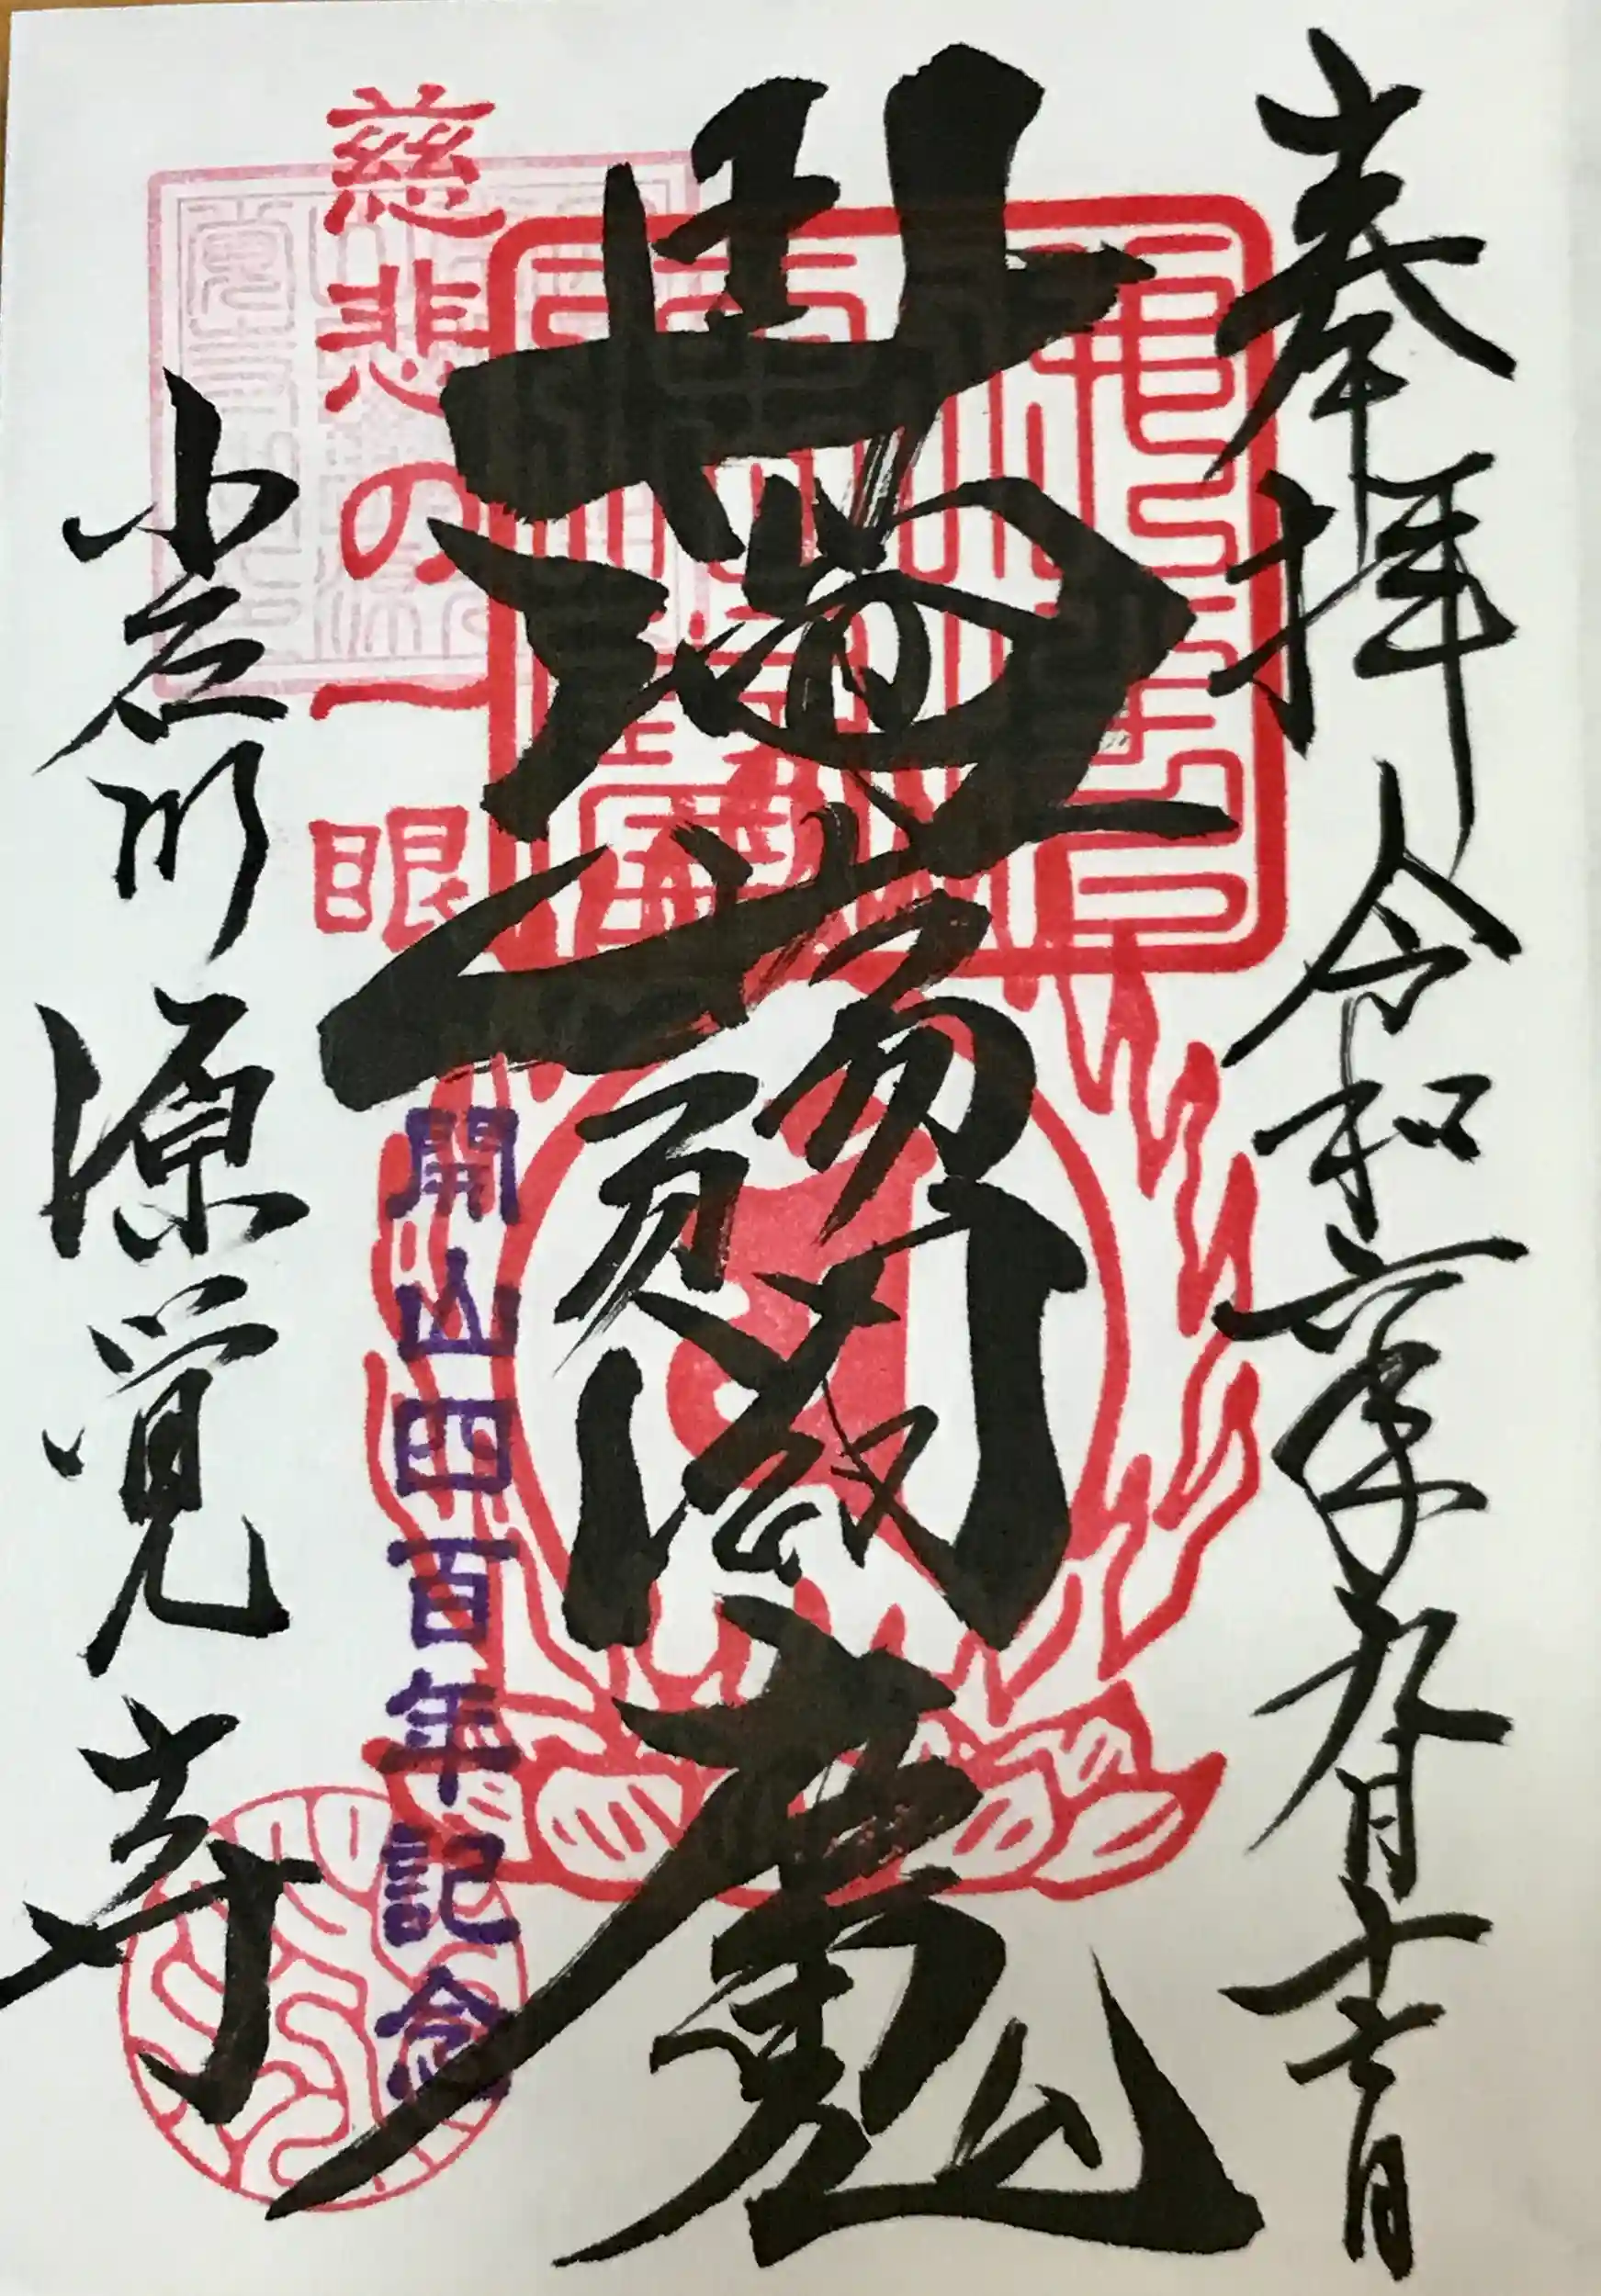 奉拝 令和六年九月
蒟蒻閻魔
慈悲の一眼
開山四百年記念
小石川 源覚寺